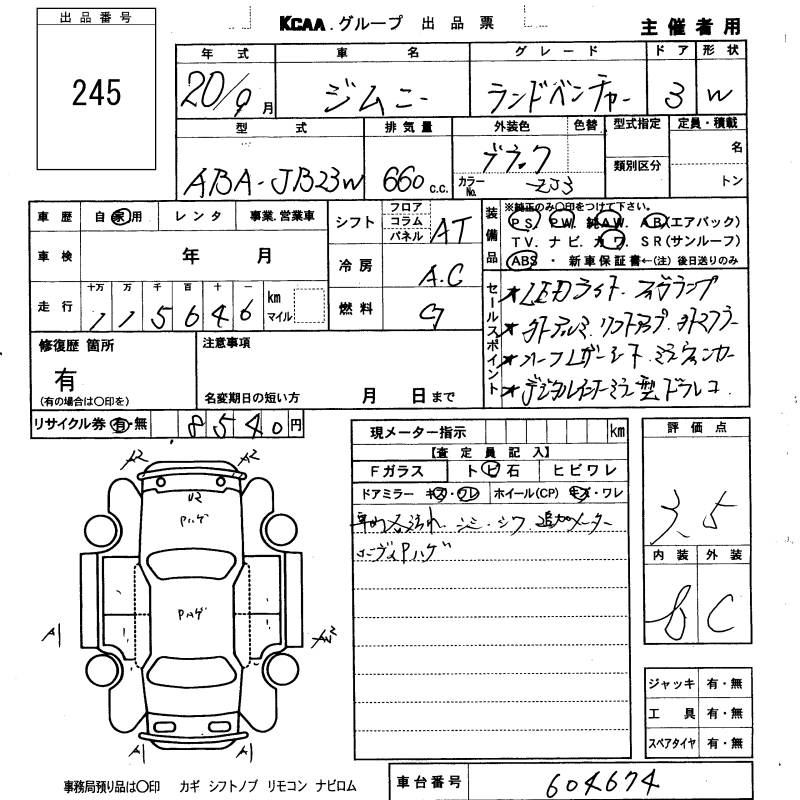 出品番号
245
KCAA.グループ 出品票
主催者用
年式 車名 グレード ドア 形状
20/9月 ジムニー ランドベンチャー 3 W
型式 排気量 外装色 色替 型式指定 定員・積載
ABA-JB23W 660 c.c. ブラック
カラーNo. ZJ3
類別区分
名
トン
車歴 自家用 レンタ 事業.営業車
車検 年 月
走行 十万 万 千 百 十 一
1 1 5 6 4 6 km マイル
シフト フロア コラム パネル AT
冷房 A.C
燃料 G
装備品 ※純正のみ○印をつけて下さい。
PS. PW. 純AW. AB(エアバック)
TV. ナビ. カワ. SR(サンルーフ)
ABS ・ 新車保証書←(注)後日送りのみ
セールスポイント
★LEDライト.フォグランプ
★外アルミ.リフトアップ.外マフラー
★ハーフレザーシート.ミラーウィンカー
★デジタルインナーミラー型ドラレコ
修復歴 箇所
有
(有の場合は○印を)
注意事項
名変期日の短い方 月 日まで
リサイクル券 有・無 8540円
現メーター指示 km
【査定員記入】
Fガラス トビ石 ヒビワレ
ドアミラー キズ・ワレ ホイール(CP) キズ・ワレ
車内汚れ.シミ.シワ.追加メーター
ボディPハゲ
評価点
3.5
内装 外装
B C
A2 A2
U2
Pハゲ
Pハゲ
A1
AW2
ジャッキ 有・無
工具 有・無
スペアタイヤ 有・無
事務局預り品は○印 カギ シフトノブ リモコン ナビロム
車台番号 604674